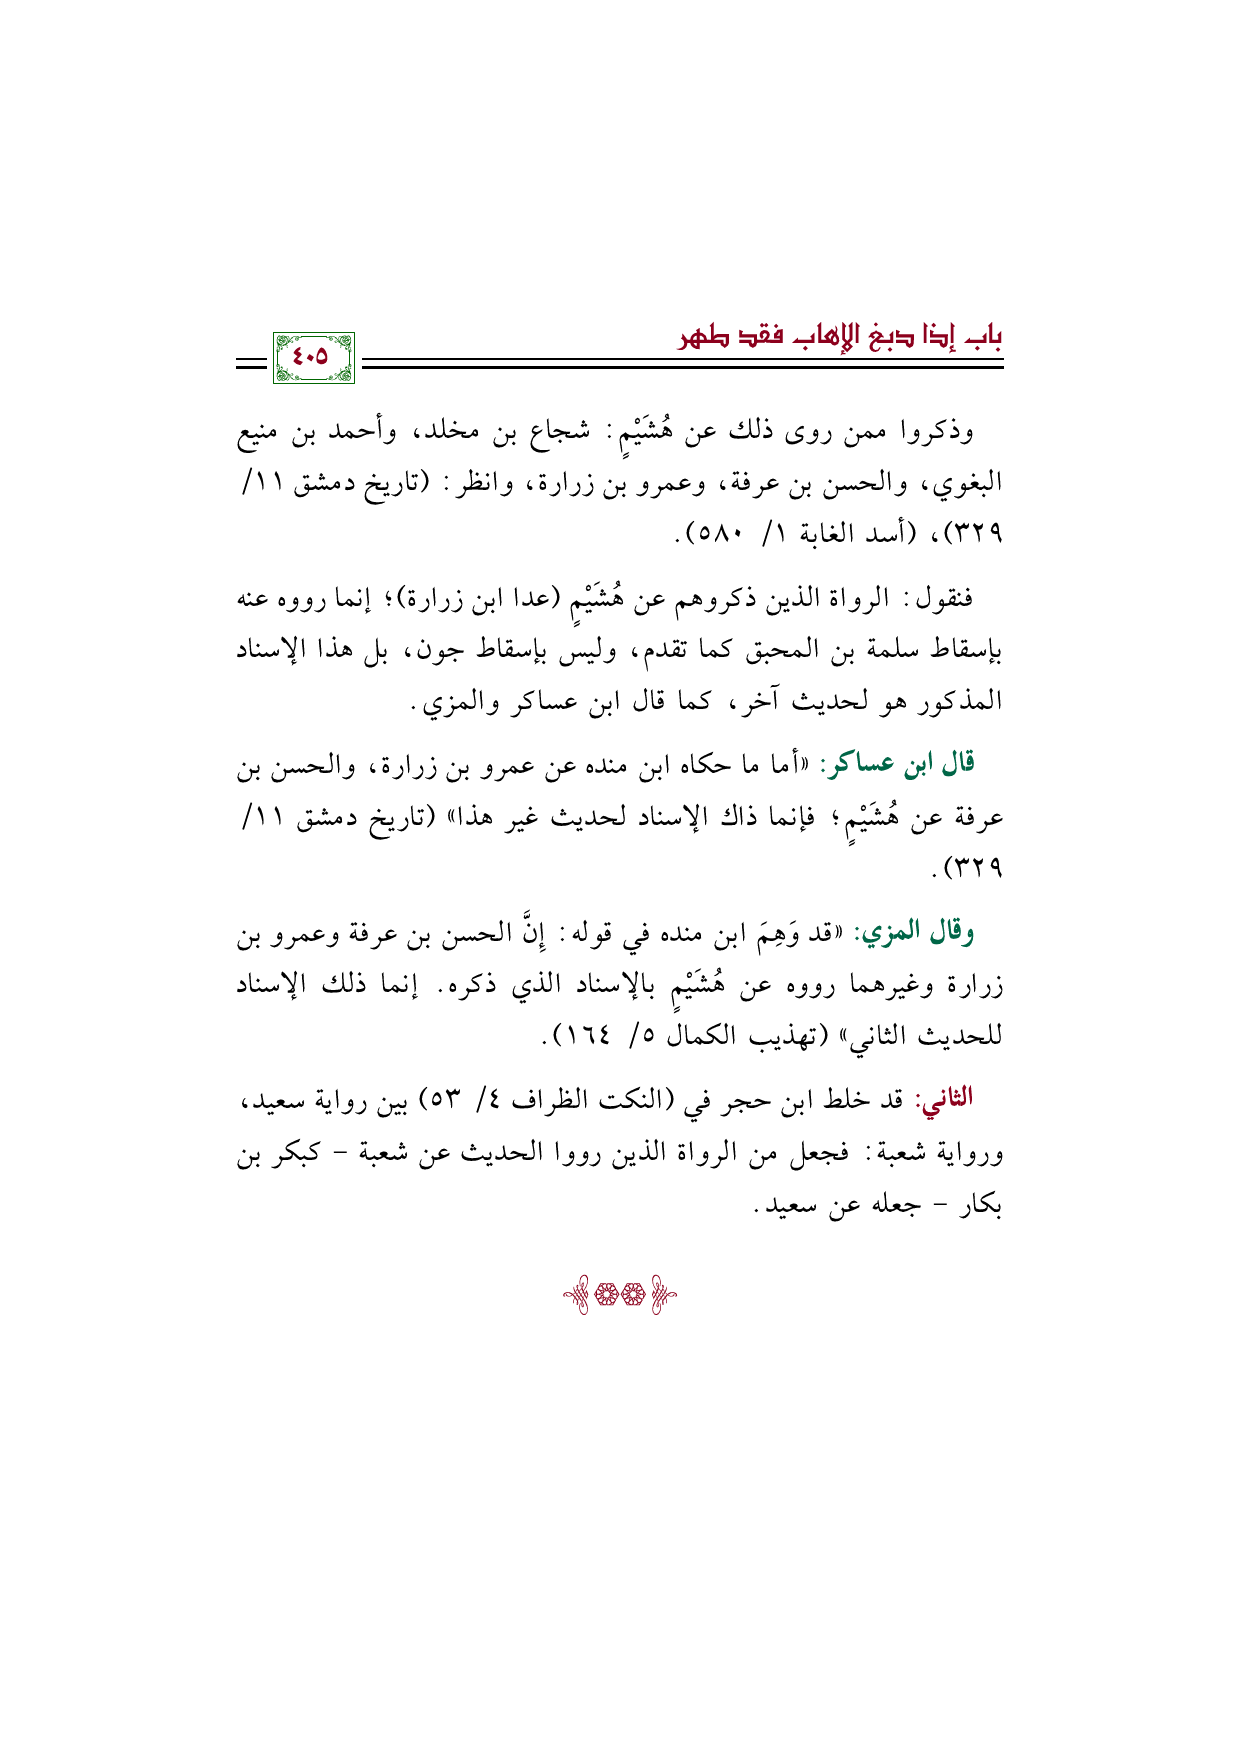 باب إذا دبغ الإهاب فقد طهر
٤٠٥
وذكروا ممن روى ذلك عن هُشَيْمٍ: شجاع بن مخلد، وأحمد بن منيع
البغوي، والحسن بن عرفة، وعمرو بن زرارة، وانظر: (تاريخ دمشق ١١/
٣٢٩)، (أسد الغابة ١/ ٥٨٠).
فنقول: الرواة الذين ذكروهم عن هُشَيْمٍ (عدا ابن زرارة)؛ إنما رووه عنه
بإسقاط سلمة بن المحبق كما تقدم، وليس بإسقاط جون، بل هذا الإسناد
المذكور هو لحديث آخر، كما قال ابن عساكر والمزي.
قال ابن عساكر: «أما ما حكاه ابن منده عن عمرو بن زرارة، والحسن بن
عرفة عن هُشَيْمٍ؛ فإنما ذاك الإسناد لحديث غير هذا» (تاريخ دمشق ١١/
٣٢٩).
وقال المزي: «قد وَهِمَ ابن منده في قوله: إِنَّ الحسن بن عرفة وعمرو بن
زرارة وغيرهما رووه عن هُشَيْمٍ بالإسناد الذي ذكره. إنما ذلك الإسناد
للحديث الثاني» (تهذيب الكمال ٥/ ١٦٤).
الثاني: قد خلط ابن حجر في (النكت الظراف ٤/ ٥٣) بين رواية سعيد،
ورواية شعبة: فجعل من الرواة الذين رووا الحديث عن شعبة – كبكر بن
بكار – جعله عن سعيد.